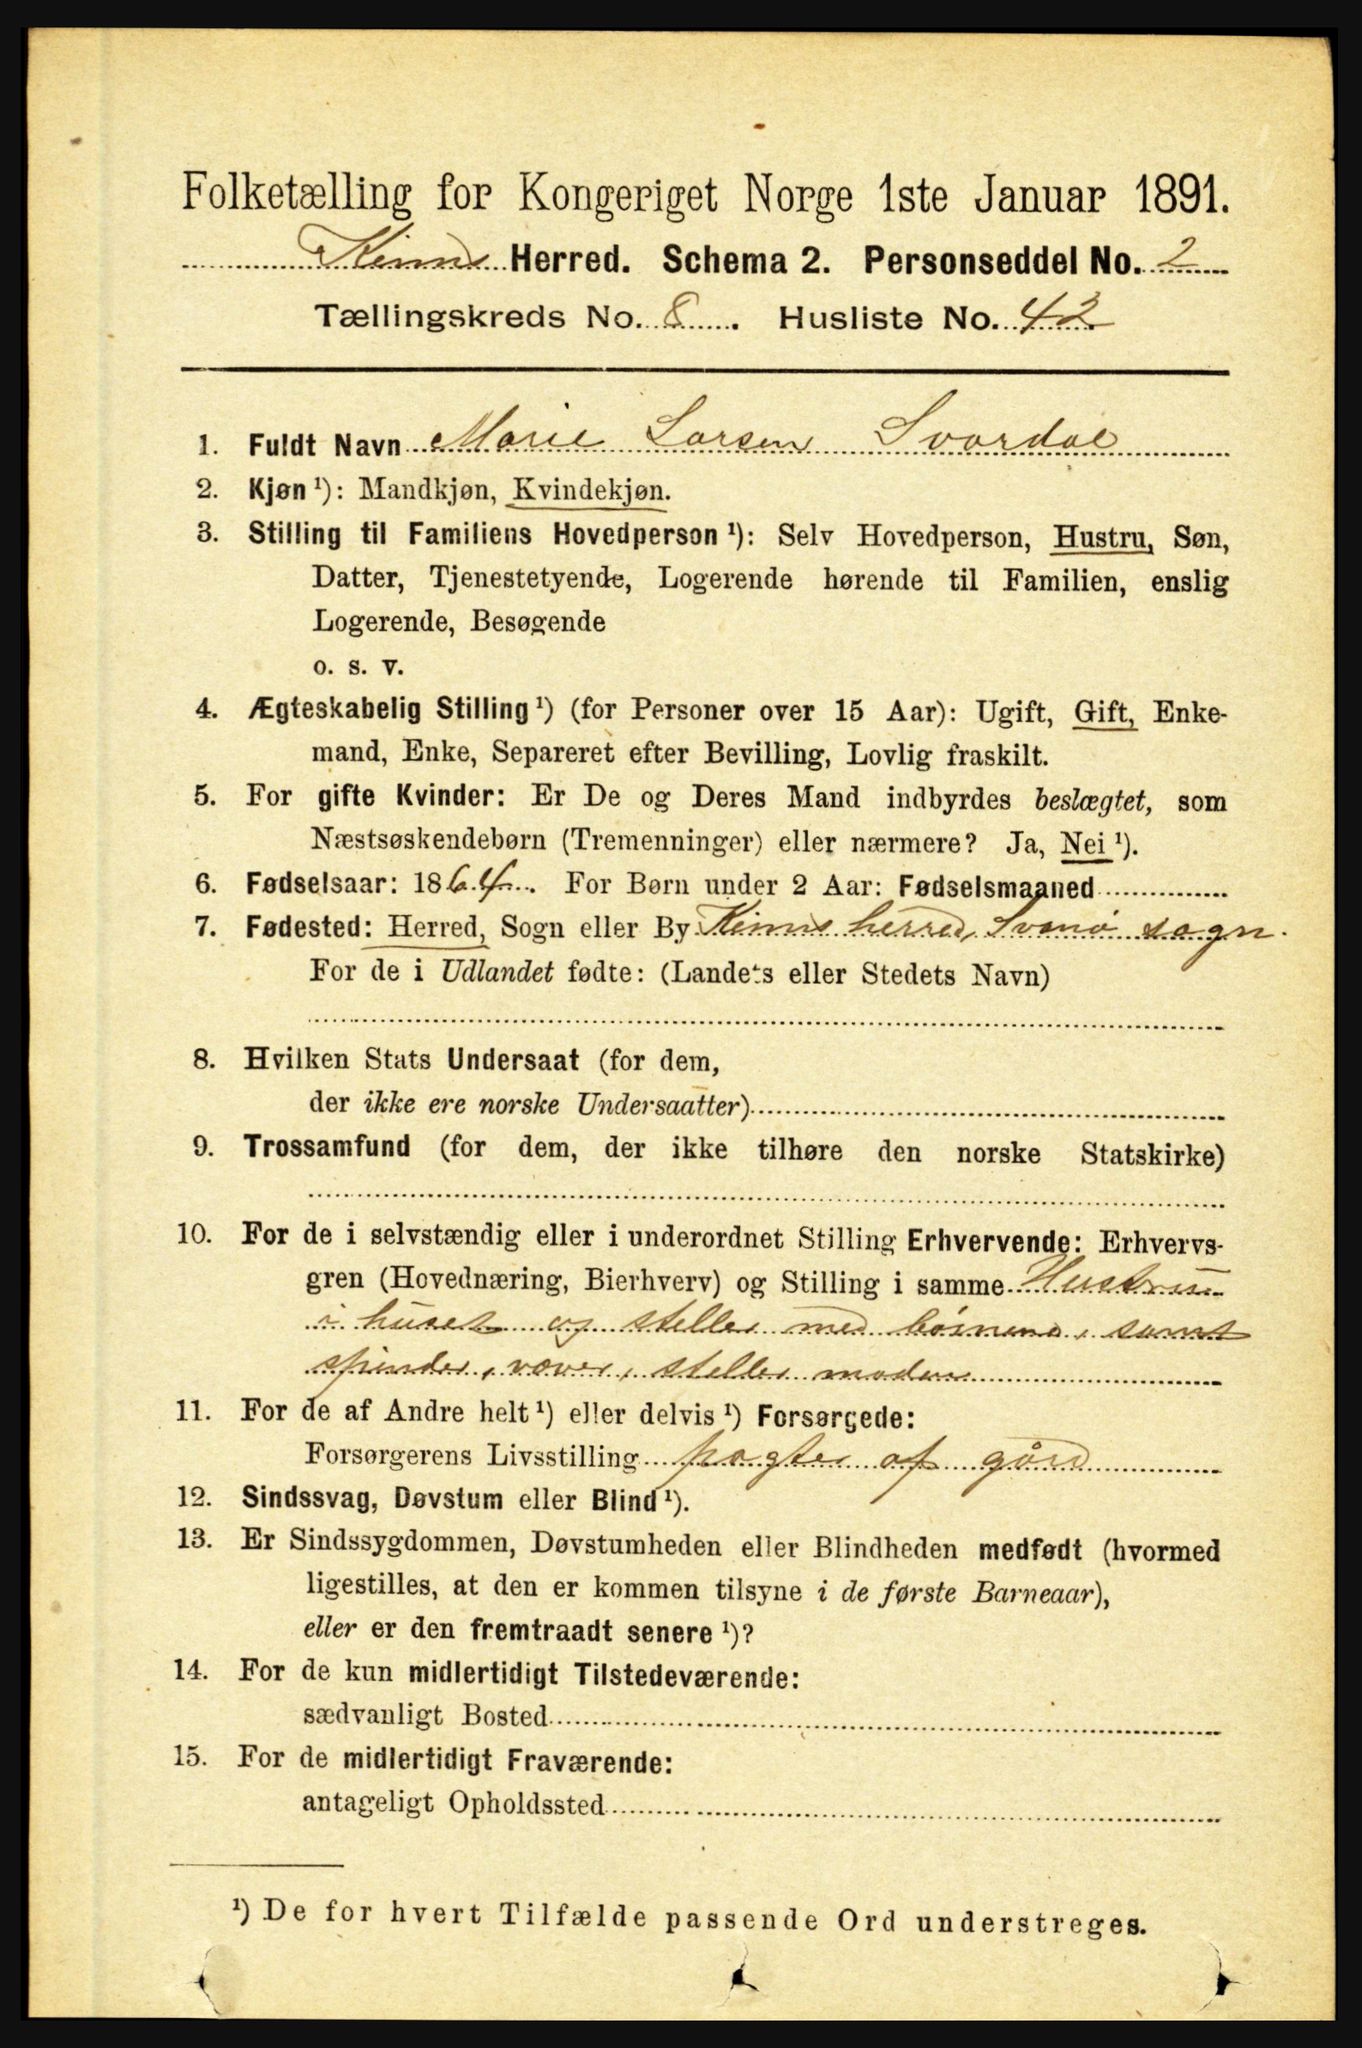 Folketælling for Kongeriget Norge 1ste Januar 1891.
Kinns Herred. Schema 2. Personseddel No. 2
Tællingskreds No. 8. Husliste No. 42
1. Fuldt Navn Marie Larsen Svardal
2. Kjøn ¹): Mandkjøn, Kvindekjøn.
3. Stilling til Familiens Hovedperson ¹): Selv Hovedperson, Hustru, Søn,
Datter, Tjenestetyende, Logerende hørende til Familien, enslig
Logerende, Besøgende
o. s. v.
4. Ægteskabelig Stilling ¹) (for Personer over 15 Aar): Ugift, Gift, Enke-
mand, Enke, Separeret efter Bevilling, Lovlig fraskilt.
5. For gifte Kvinder: Er De og Deres Mand indbyrdes beslægtet, som
Næstsøskendebørn (Tremenninger) eller nærmere? Ja, Nei ¹).
6. Fødselsaar: 1864. For Børn under 2 Aar: Fødselsmaaned
7. Fødested: Herred, Sogn eller By Kinns herred, Svanø sogn.
For de i Udlandet fødte: (Landets eller Stedets Navn)
8. Hvilken Stats Undersaat (for dem,
der ikke ere norske Undersaatter)
9. Trossamfund (for dem, der ikke tilhøre den norske Statskirke)
10. For de i selvstændig eller i underordnet Stilling Erhvervende: Erhvervs-
gren (Hovednæring, Bierhverv) og Stilling i samme Hustru
i huset og steller med børnene, samt
spinder, væver, steller maden
11. For de af Andre helt ¹) eller delvis ¹) Forsørgede:
Forsørgerens Livsstilling pagter af gård
12. Sindssvag, Døvstum eller Blind ¹).
13. Er Sindssygdommen, Døvstumheden eller Blindheden medfødt (hvormed
ligestilles, at den er kommen tilsyne i de første Barneaar),
eller er den fremtraadt senere ¹)?
14. For de kun midlertidigt Tilstedeværende:
sædvanligt Bosted
15. For de midlertidigt Fraværende:
antageligt Opholdssted
¹) De for hvert Tilfælde passende Ord understreges.